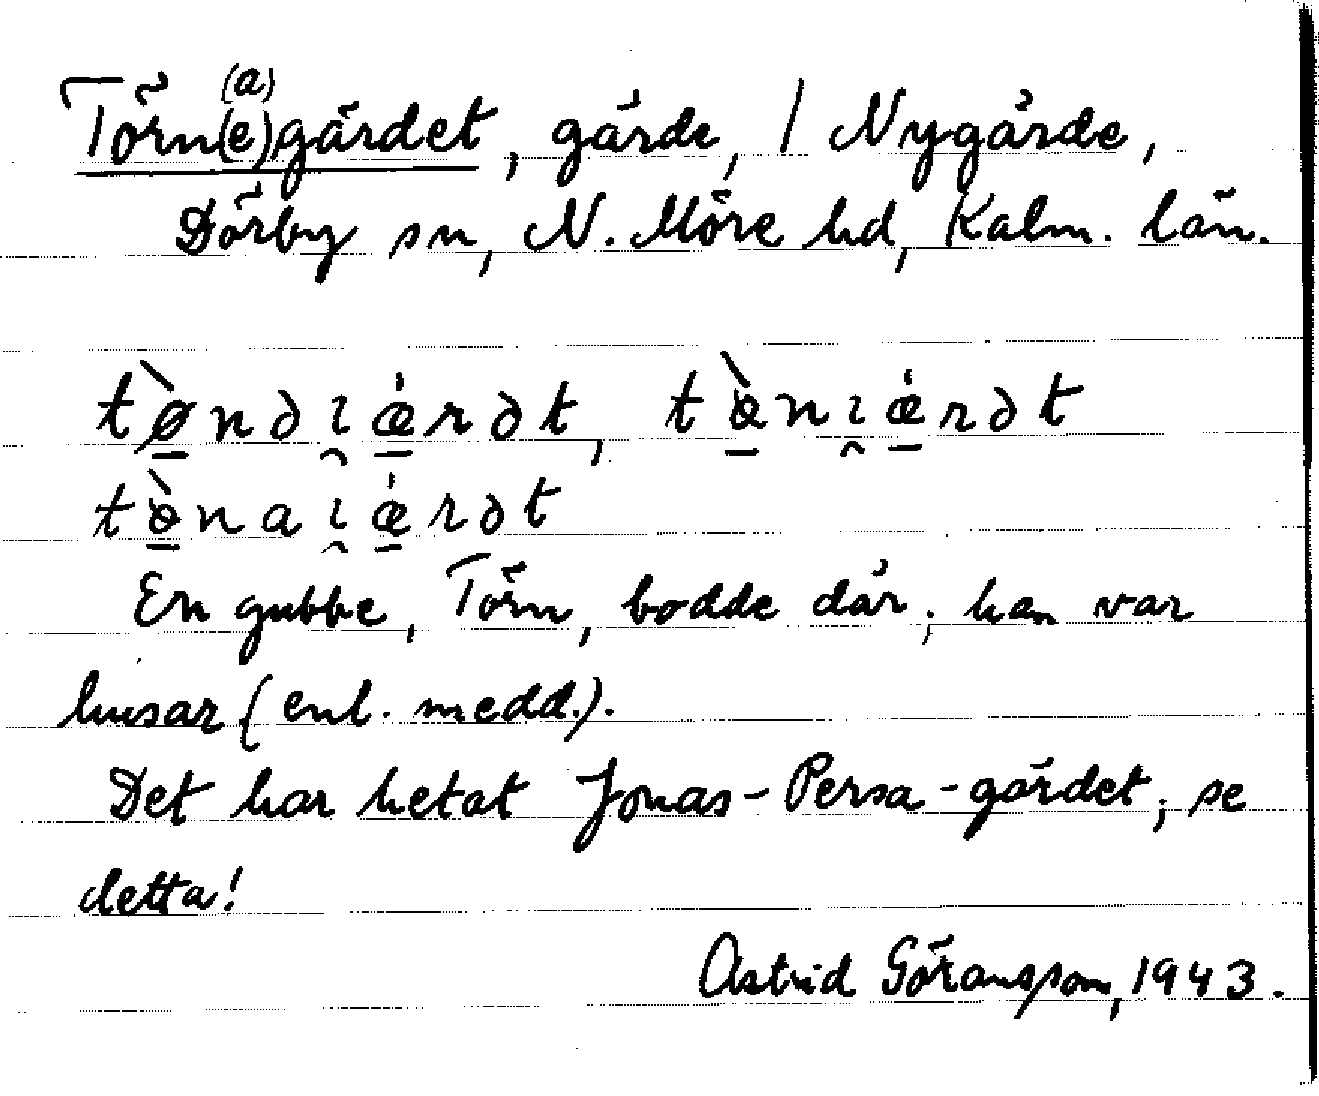 Törn(e)(a)gärdet, gärde, / Nygärde,
Dörby sn, N. Möre hd, Kalm. län.
tø̱̀nəı̯ǽ̱rət, tö̱̀nı̯ǽ̱rət
tö̱̀naı̯ǽ̱rət
En gubbe, Törn, bodde där; han var
husar (enl. medd.).
Det har hetat Jonas-Persa-gärdet; se
detta!
Astrid Göransson, 1943.